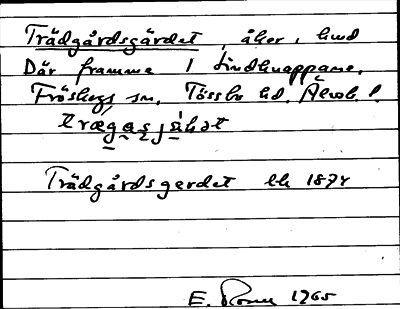 Trädgårdsgärdet, åker, hmd
Där framme i Lindknappane.
Fröskogs sn, Tössbo hd. Älvsb. l.
Trädgårdsgerdet lk 1874
E. 1965